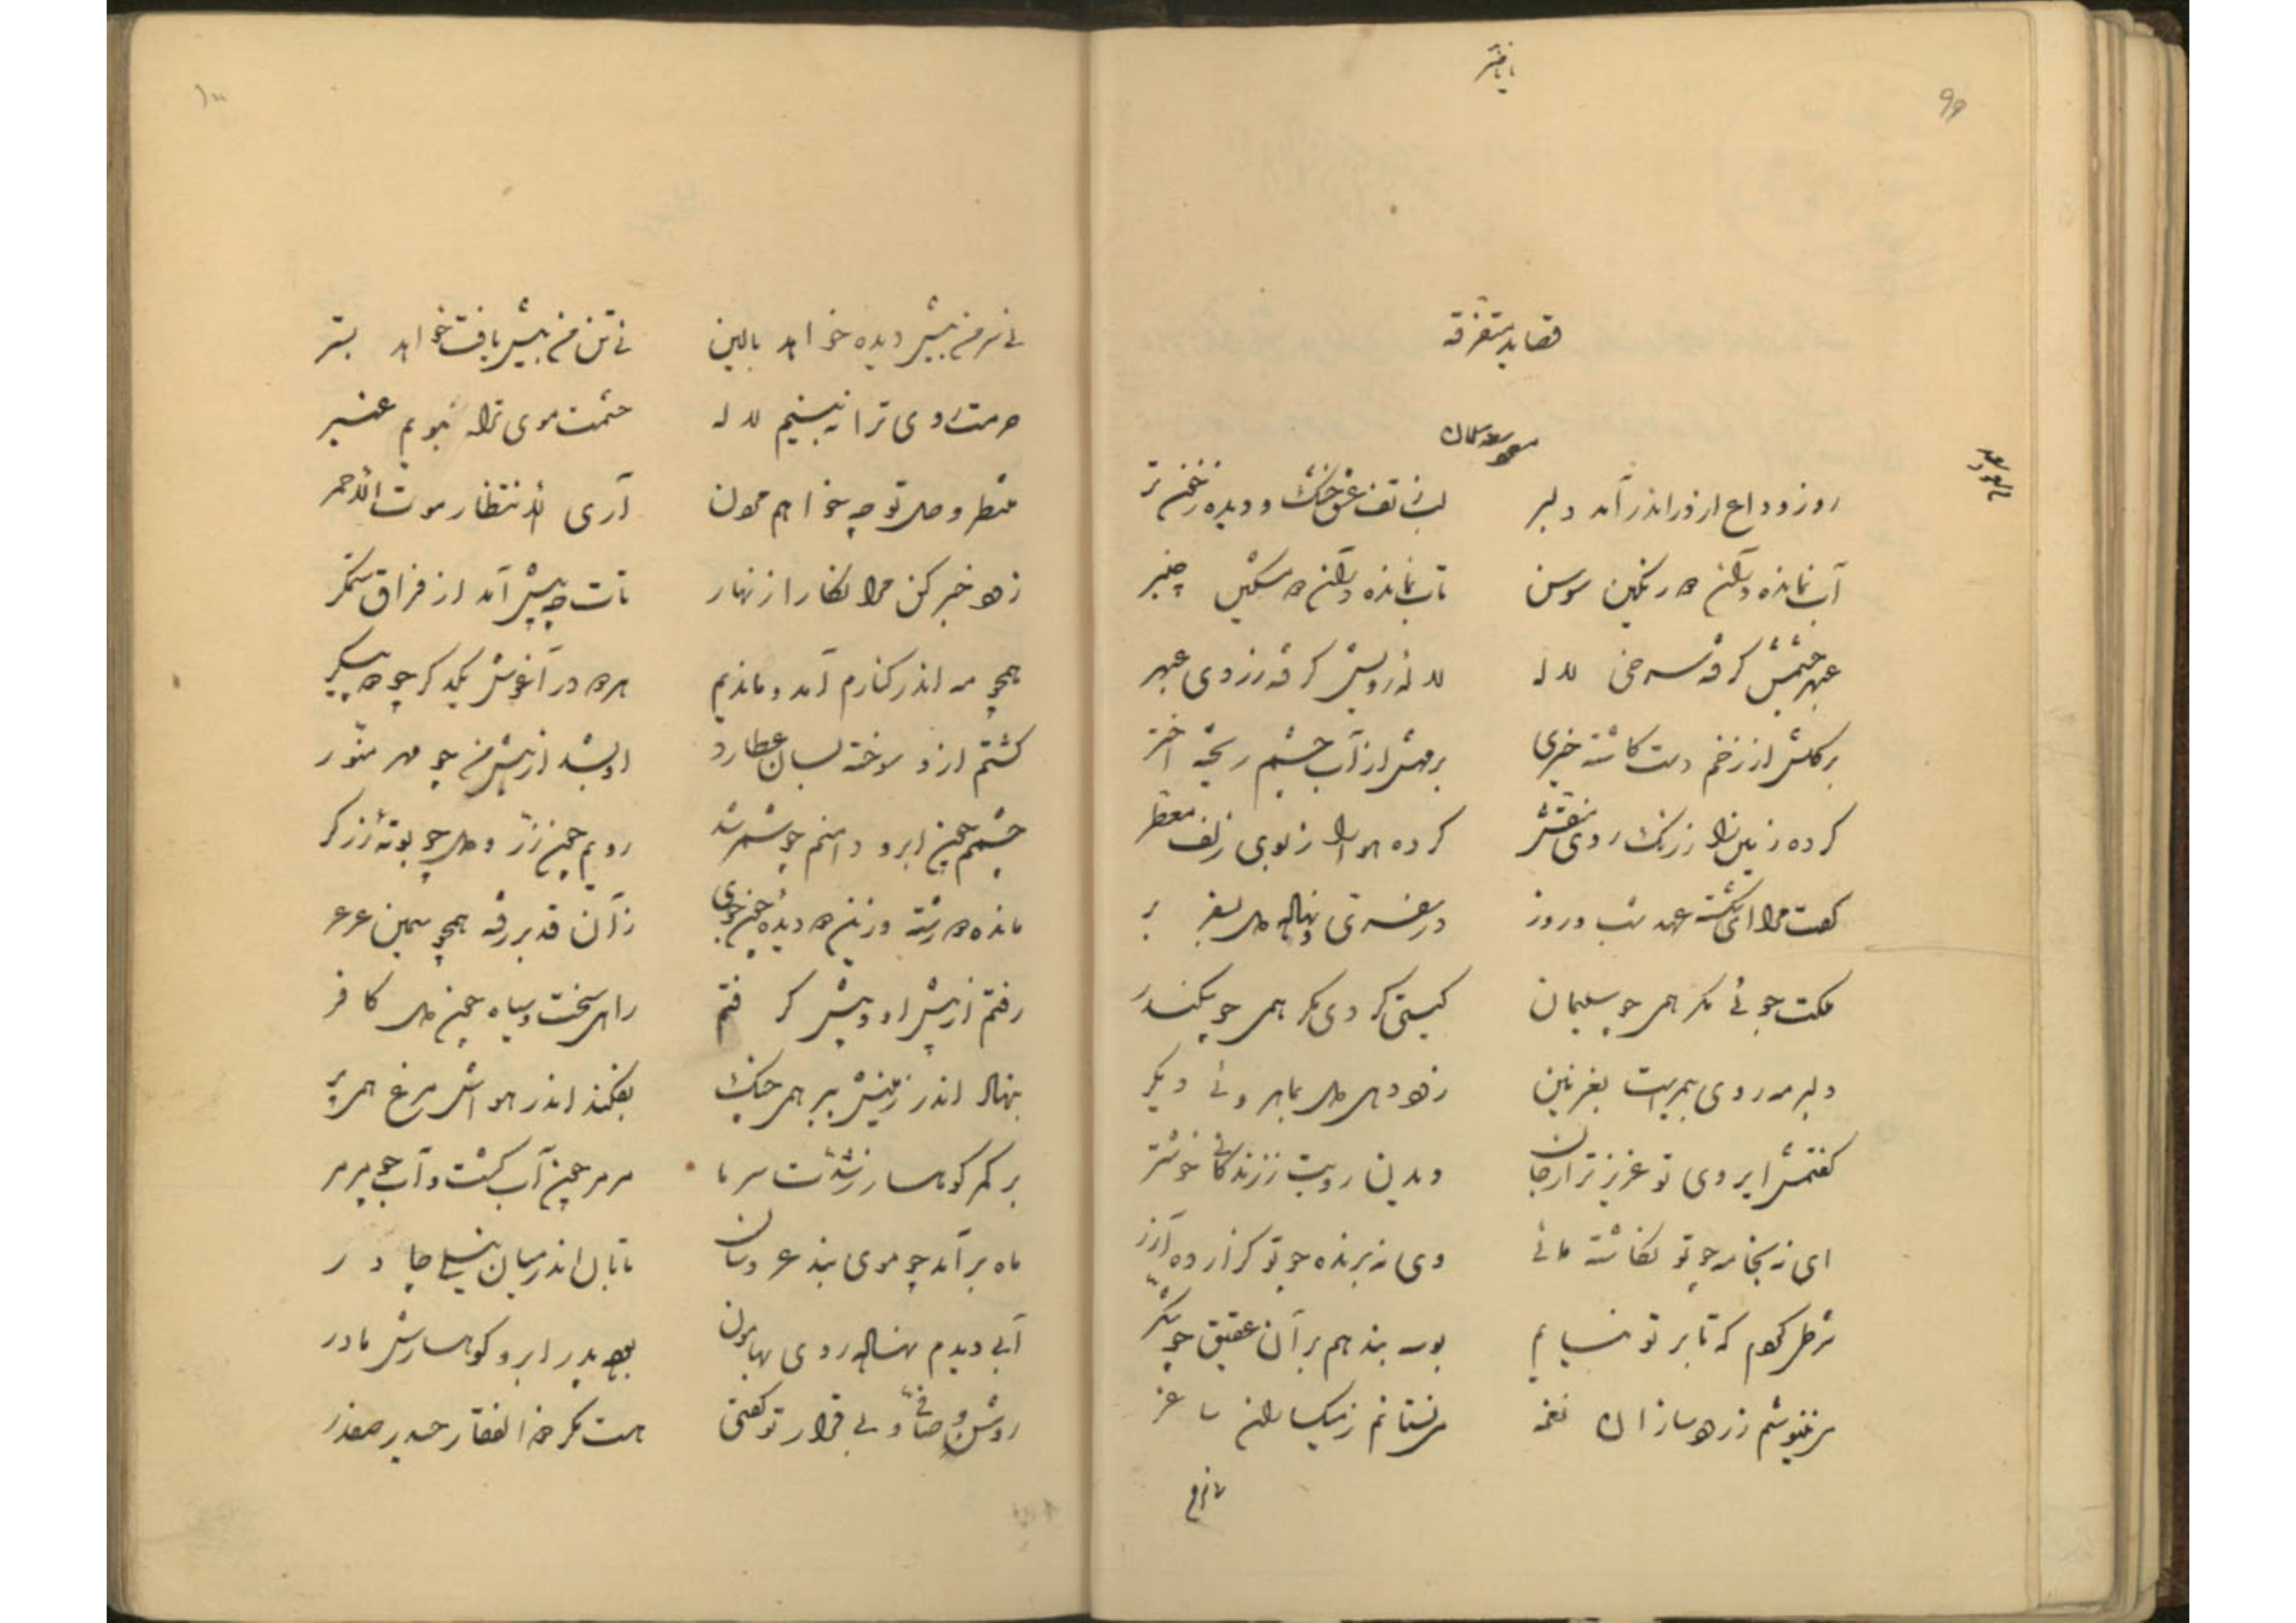 ۹۹
قصاید متفرقه
مسعود سعد سلمان
مسعود سعد
روز وداع از در اندر آمد دلبر لب ز تف عشق خشک و دیده ز خون تر
آب نمانده در آن دو رنگین سوسن تاب نمانده در آن دو مشکین چنبر
عبهر چشمش گرفته سرخی لاله لالهٔ رویش گرفته زردی عبهر
بر گلش از زخم دست کاشته خیری بر مهش از آب چشم ریخته اختر
کرده زمین را ز رنگ روی منقش کرده هوا را ز بوی زلف معطر
گفت مرا ای شکسته عهد شب و روز در سفری و نهاده دل بسفر بر
ملکت جوئی مگر همی چو سلیمان گیتی گردی مگر همی چو سکندر
دلبر مه روی بیمرست بغزنین زود دهی دل بماهروئی دیگر
گفتمش ای روی تو عزیزتر از جان دیدن رویت ز زندگانی خوشتر
ای نه بخامه چو تو نگاشته مانی وی نه برنده چو تو گزارده آزر
شرط کردم که تا بر تو نیایم بوسه ندهم بر آن عقیق چو شکر
می ننیوشم ز رودسازان نغمه می نستانم ز میگساران ساغر
۱۰۰
نی سر من بیش دیده خواهد بالین نی تن من بیش یافت خواهد بستر
حرمت روی ترا نبینم لاله حشمت موی ترا نبویم عنبر
منتظر وصل تو چه خواهم بودن آری الانتظار موت الاحمر
زود خبر کن مرا نگارا زنهار تات چه پیش آمد از فراق ستمگر
همچو مه اندر کنارم آمد و ماندیم هر دو در آغوش یکدگر چو دو پیکر
گشتم ازو سوخته بسان عطارد او بشد از پیش من چو مهر منور
چشمم چون ابر و دامنم چو شمر شد رویم چون زر و دل چو بوتهٔ زرگر
مانده دو رشته در زین دو دیده چون جوی زآن قد بر رفته همچو سیمین عرعر
رفتم از پیش او و پیش گرفتم راهی سخت و سیاه چون دل کافر
بنهاد اندر زمینش ببر همی چنگ بفکند اندر هواش مرغ همی پر
بر کمر کوهسار ز شدت سرما مرمر چون آب گشت و آب چو مرمر
ماه برآمد چو موی بند عروسان تابان اندر میان نیلی چادر
آبی دیدم نهاده روی بهامون بوده پدر ابر و کوهسارش مادر
روشن و صافی و بی قرار تو گفتی هست مگر ذوالفقار حیدر صفدر